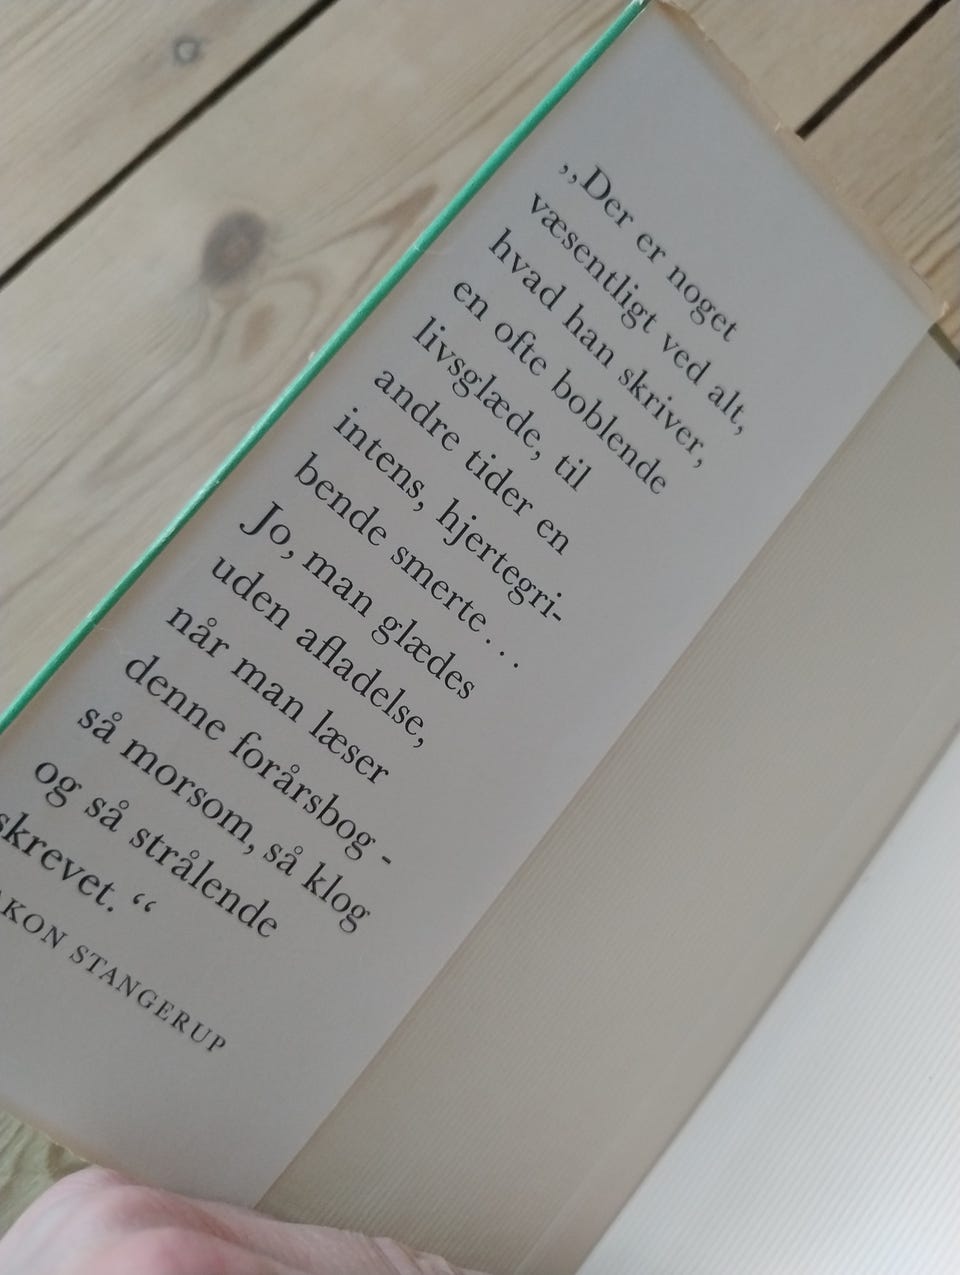 „Der er noget
væsentligt ved alt,
hvad han skriver,
en ofte boblende
livsglæde, til
andre tider en
intens, hjertegri-
bende smerte...
Jo, man glædes
uden afladelse,
når man læser
denne forårsbog -
så morsom, så klog
og så strålende
skrevet.“
AKON STANGERUP